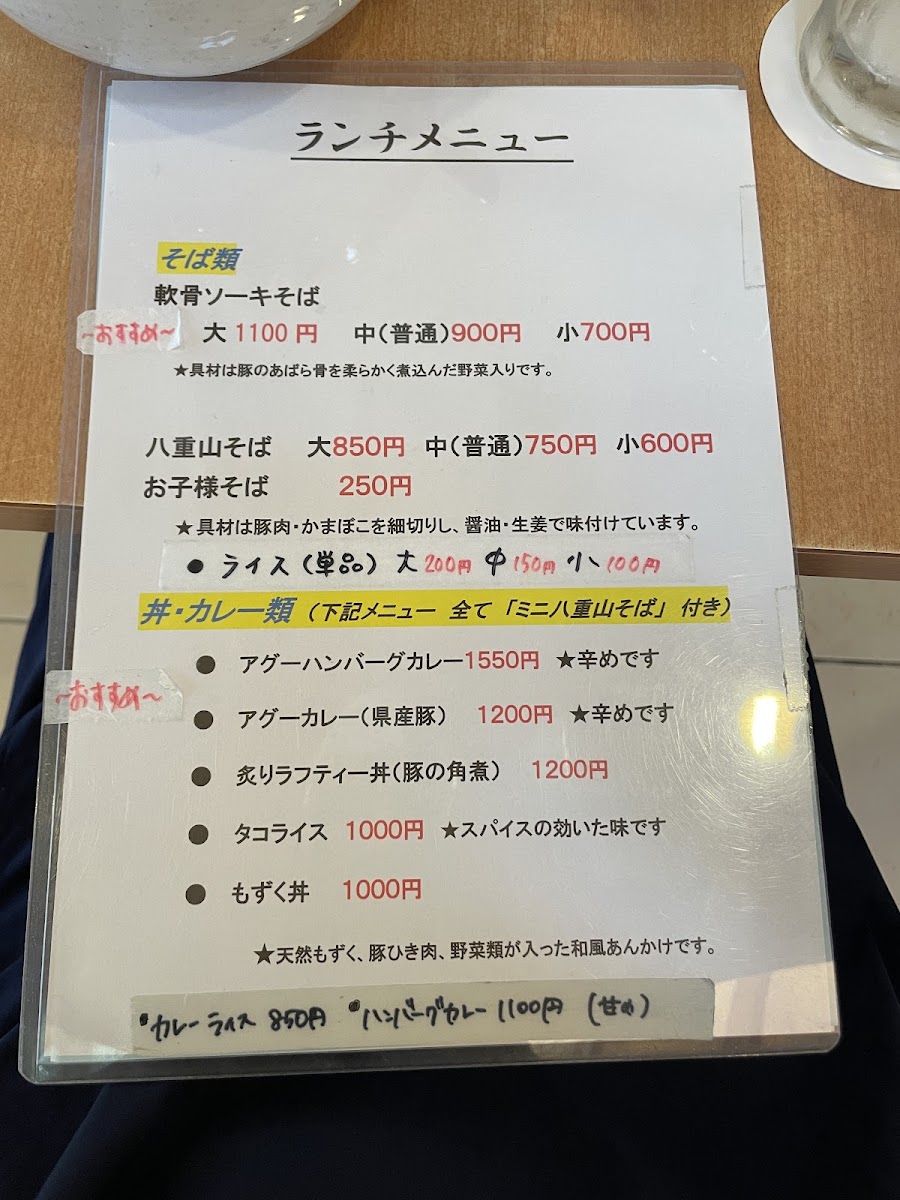 ランチメニュー
そば類
軟骨ソーキそば
~おすすめ~ 大1100円 中(普通)900円 小700円
★具材は豚のあばら骨を柔らかく煮込んだ野菜入りです。
八重山そば 大850円 中(普通)750円 小600円
お子様そば 250円
★具材は豚肉・かまぼこを細切りし、醤油・生姜で味付けています。
●ライス(単品) 大200円 中150円 小100円
丼・カレー類 (下記メニュー 全て 「ミニ八重山そば」 付き)
● アグーハンバーグカレー1550円 ★辛めです
~おすすめ~
● アグーカレー(県産豚) 1200円 ★辛めです
● 炙りラフティー丼(豚の角煮) 1200円
● タコライス 1000円 ★スパイスの効いた味です
● もずく丼 1000円
★天然もずく、豚ひき肉、野菜類が入った和風あんかけです。
•カレーライス 850円 •ハンバーグカレー 1100円 (甘め)